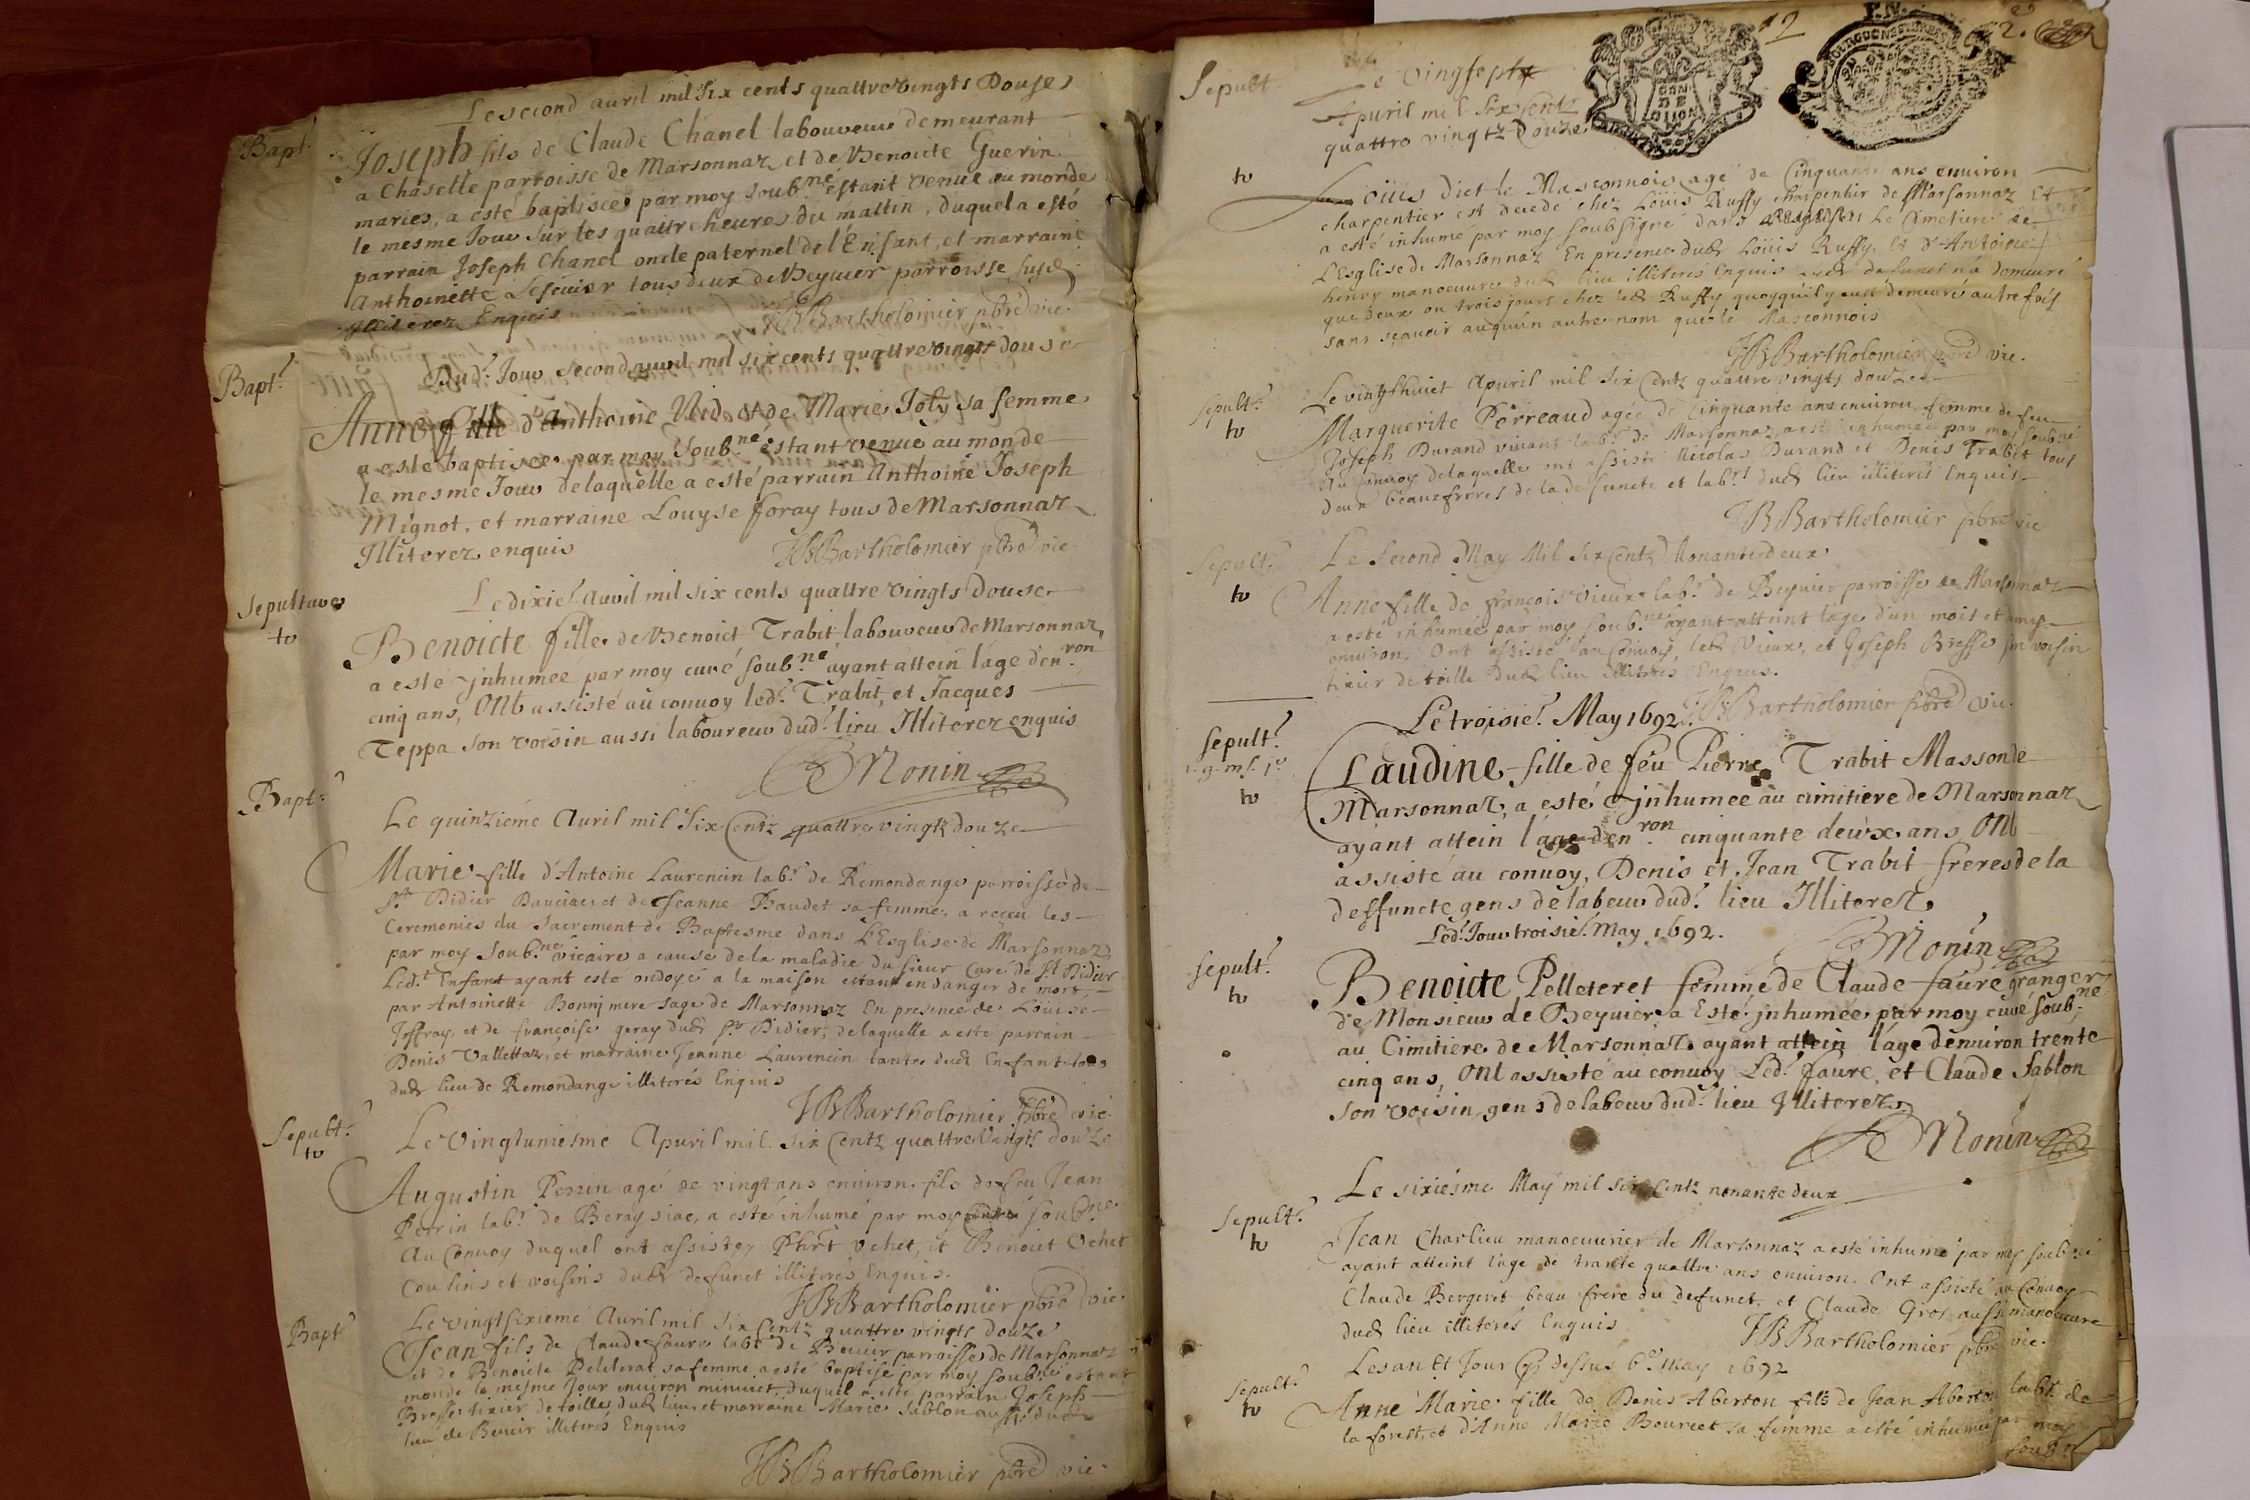 Bapt.
Le second auril mil six cents quattre vingts Douse
Joseph fils de Claude Chanel laboureur demeurant
a Chaselle parroisse de Marsonnaz et de Benoite Guerin
maries, a esté baptisee par moy soub.né estant venue au monde
le mesme Jour sur les quattre heures du mattin, duquel a esté
parrain Joseph Chanel oncle paternel de l'Enfant, et marraine
Anthoinette tous deux de Beyuier parroisse
Illiterez Enquis JB Bartholomier pbré vic.
Bapt.
Dud. Jour second auuril mil six cents quattre vingts douse
Anne fille d'Anthoine Nid et de Marie Joly sa femme
a este baptisee par moy soub.né estant venue au monde
le mesme Jour de laquelle a esté parrain Anthoine Joseph
Mignot, et marraine Louyse foray tous de Marsonnaz
Illiterez enquis JB Bartholomier pbré vic.
Sepulture
to
Le dixie. Auril mil six cents quattre vingts Douse
Benoicte fille de Benoict Trabit laboureur de Marsonnaz
a esté jnhumee par moy curé soub.né ayant attein l'age d'en.ron
cinq ans, ont assisté au conuoy led. Trabit, et Jacques
Teppa son voisin aussi laboureur dud. lieu Illiterez enquis
Monin
Bapt.
Le quinziéme Auril mil six Centz quattre vingtz douze
Marie fille d'Antoine Laurencin lab.r de Remondange parroisse de
st. Didier et de Jeanne Baudet sa femme, a receu les
Ceremonies du Sacrement de Baptesme dans L'Esglise de Marsonnaz
par moy soub.né vicaire a cause de la maladie du sieur Curé de st. Didier
Led.t Enfant ayant esté ondoyé a la maison estant en danger de mort,
par Antoinette Bonnj mere sage de Marsonnaz En presence de Louise
Joffray, et de françoise geray dud st. Didier, de laquelle a esté parrain
Denis Vallettaz, et marraine Jeanne Laurencin tante dud Enfant tous
dud lieu de Remondange illiterés Enquis
JB Bartholomier pbré vic.
Sepult.
to
Le Vingtuniesme Apuril mil six Centz quattre Vingts douze
Augustin Perrin agé de vingt ans enuiron fils de feu Jean
Perrin lab.r de Beraysiac, a esté inhumé par moy soub.né
Au Conuoy duquel ont assistez Vchet, et Benoict Vchet
Cousins et voisins dud deffunct illiterés Enquis.
JB Bartholomier pbré vic.
Bapt
Le vingtsixieme Auril mil six Centz quattre vingts douze
Jean fils de Claude faure lab.r de Beuier parroisse de Marsonnaz
et de Benoicte Peleterat sa femme a esté baptisé par moy soub.né estant
monde le mesme Jour enuiron minuict, duquel a esté parrain Joseph
Bresse tixier de toille dud lieu, et marraine Marie Sablon aussi dud
lieu de Beuier illiterés Enquis
JB Bartholomier pbré vic.
12
F.N.
2.
CON
DE
DIJON
Sepult.
to
Le Vingsept
Apuril mil six Centz
quattre vingtz Douze
Louis dict le Masconnois agé de Cinquante ans enuiron
charpentier est decedé chez Louis Ruffy charpentier de Marsonnaz Et
a esté inhumé par moy soubsigné dans Le Cimetiere de
L'Esglise de Marsonnaz En presence dud Louis Ruffy, et d'Antoine
henry manoeuure dud lieu illiterés Enquis led defunct n'a demeuré
que deux ou trois jours chez led Ruffy quoyqu'il y eust demeuré autrefois
sans sçauoir auquun autre nom que le Masconnois
JB Bartholomier pbré vic.
Sepult.
to
Le vingthuict Apuril mil six Centz quattre vingts douze
Marguerite Perreaud agée de Cinquante ans enuiron femme de feu
Joseph Durand viuant lab.r de Marsonnaz, a esté inhumée par moy soub.né
Au Conuoy de laquelle ont assisté Nicolas Durand et Denis Trabit tous
deux beaux freres de la defuncte et lab.rs dud lieu illiterés Enquis
JB Bartholomier pbré vic
Sepult.
to
Le second May Mil six Centz Nonante deux
Anne fille de françois Vieux lab.r de Beyuier parroisse de Marsonnaz
a esté inhumée par moy soub.né ayant atteint l'age d'un mois et
enuiron. Ont assisté au Conuoy led Vieux, et Joseph Bresse son voisin
tixier de toille dud lieu illiterés Enquis.
JB Bartholomier pbré vic.
Sepult.
to
Le troisie. May 1692.
Claudine fille de feu Pierre Trabit Masson de
Marsonnaz, a esté jnhumee au cimitiere de Marsonnaz
ayant attein l'age d'en.ron cinquante deux ans Ont
assisté au conuoy, Denis et Jean Trabit freres de la
deffuncte gens de labeur dud. lieu Illiterez.
Monin
Sepult.
to
Led. Jour troisie. May 1692.
Benoicte Pelleteret femme de Claude faure granger
de Monsieur de Beyuier a Esté jnhumée par moy curé soub.né
au Cimitiere de Marsonnaz ayant attein l'age d'enuiron trente
cinq ans, Ont assisté au conuoy Led. faure, et Claude Sablon
son voisin gens de labeur dud. lieu Illiterez.
Monin
Sepult.
to
Le sixiesme May mil six Centz nonante deux
Jean Charlieu manoeuurier de Marsonnaz a esté inhumé par moy soub.né
ayant atteint l'age de trante quattre ans enuiron. Ont assisté au Conuoy
Claude Bergeret beau frere du defunct, et Claude Gros aussi manoeuure
dud lieu illiterés Enquis
JB Bartholomier pbré vic.
Sepult.
to
Les an et Jour Cy dessus 6.e May 1692
Anne Marie fille de Denis Aberton fils de Jean Aberton lab.r de
la forest, et d'Anne Marie Bourcet sa femme a esté inhumée par moy
soub.né